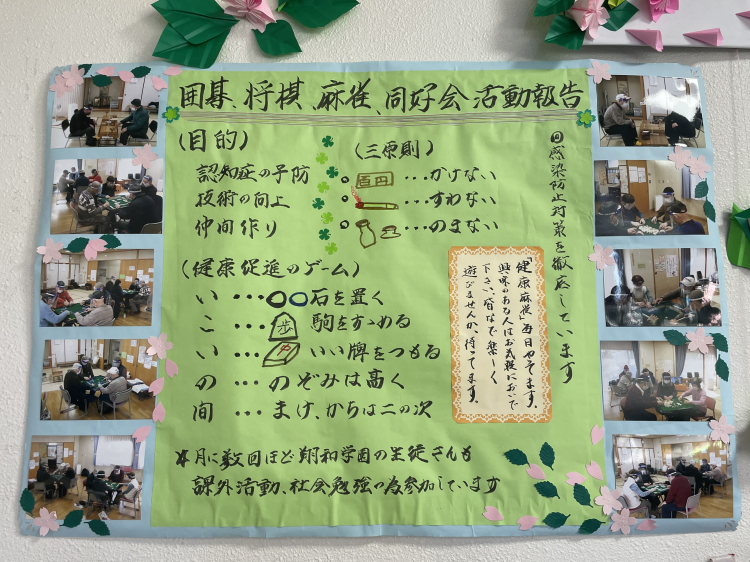 囲碁、将棋、麻雀、同好会活動報告
(目的)
認知症の予防
技術の向上
仲間作り
(三原則)
百円…かけない
…すわない
…のまない
◎感染防止対策を徹底しています
(健康促進のゲーム)
い…石を置く
こ…歩 駒をすゝめる
い…いい牌をつもる
の…のぞみは高く
間…まけ、からは二の次
「健康麻雀」毎日やってます。
興味のある人はお気軽においで
下さい、皆なで楽しく
遊びませんか、待ってます。
*月に数回ほど翔和学園の生徒さんも
課外活動、社会勉強の為参加しています